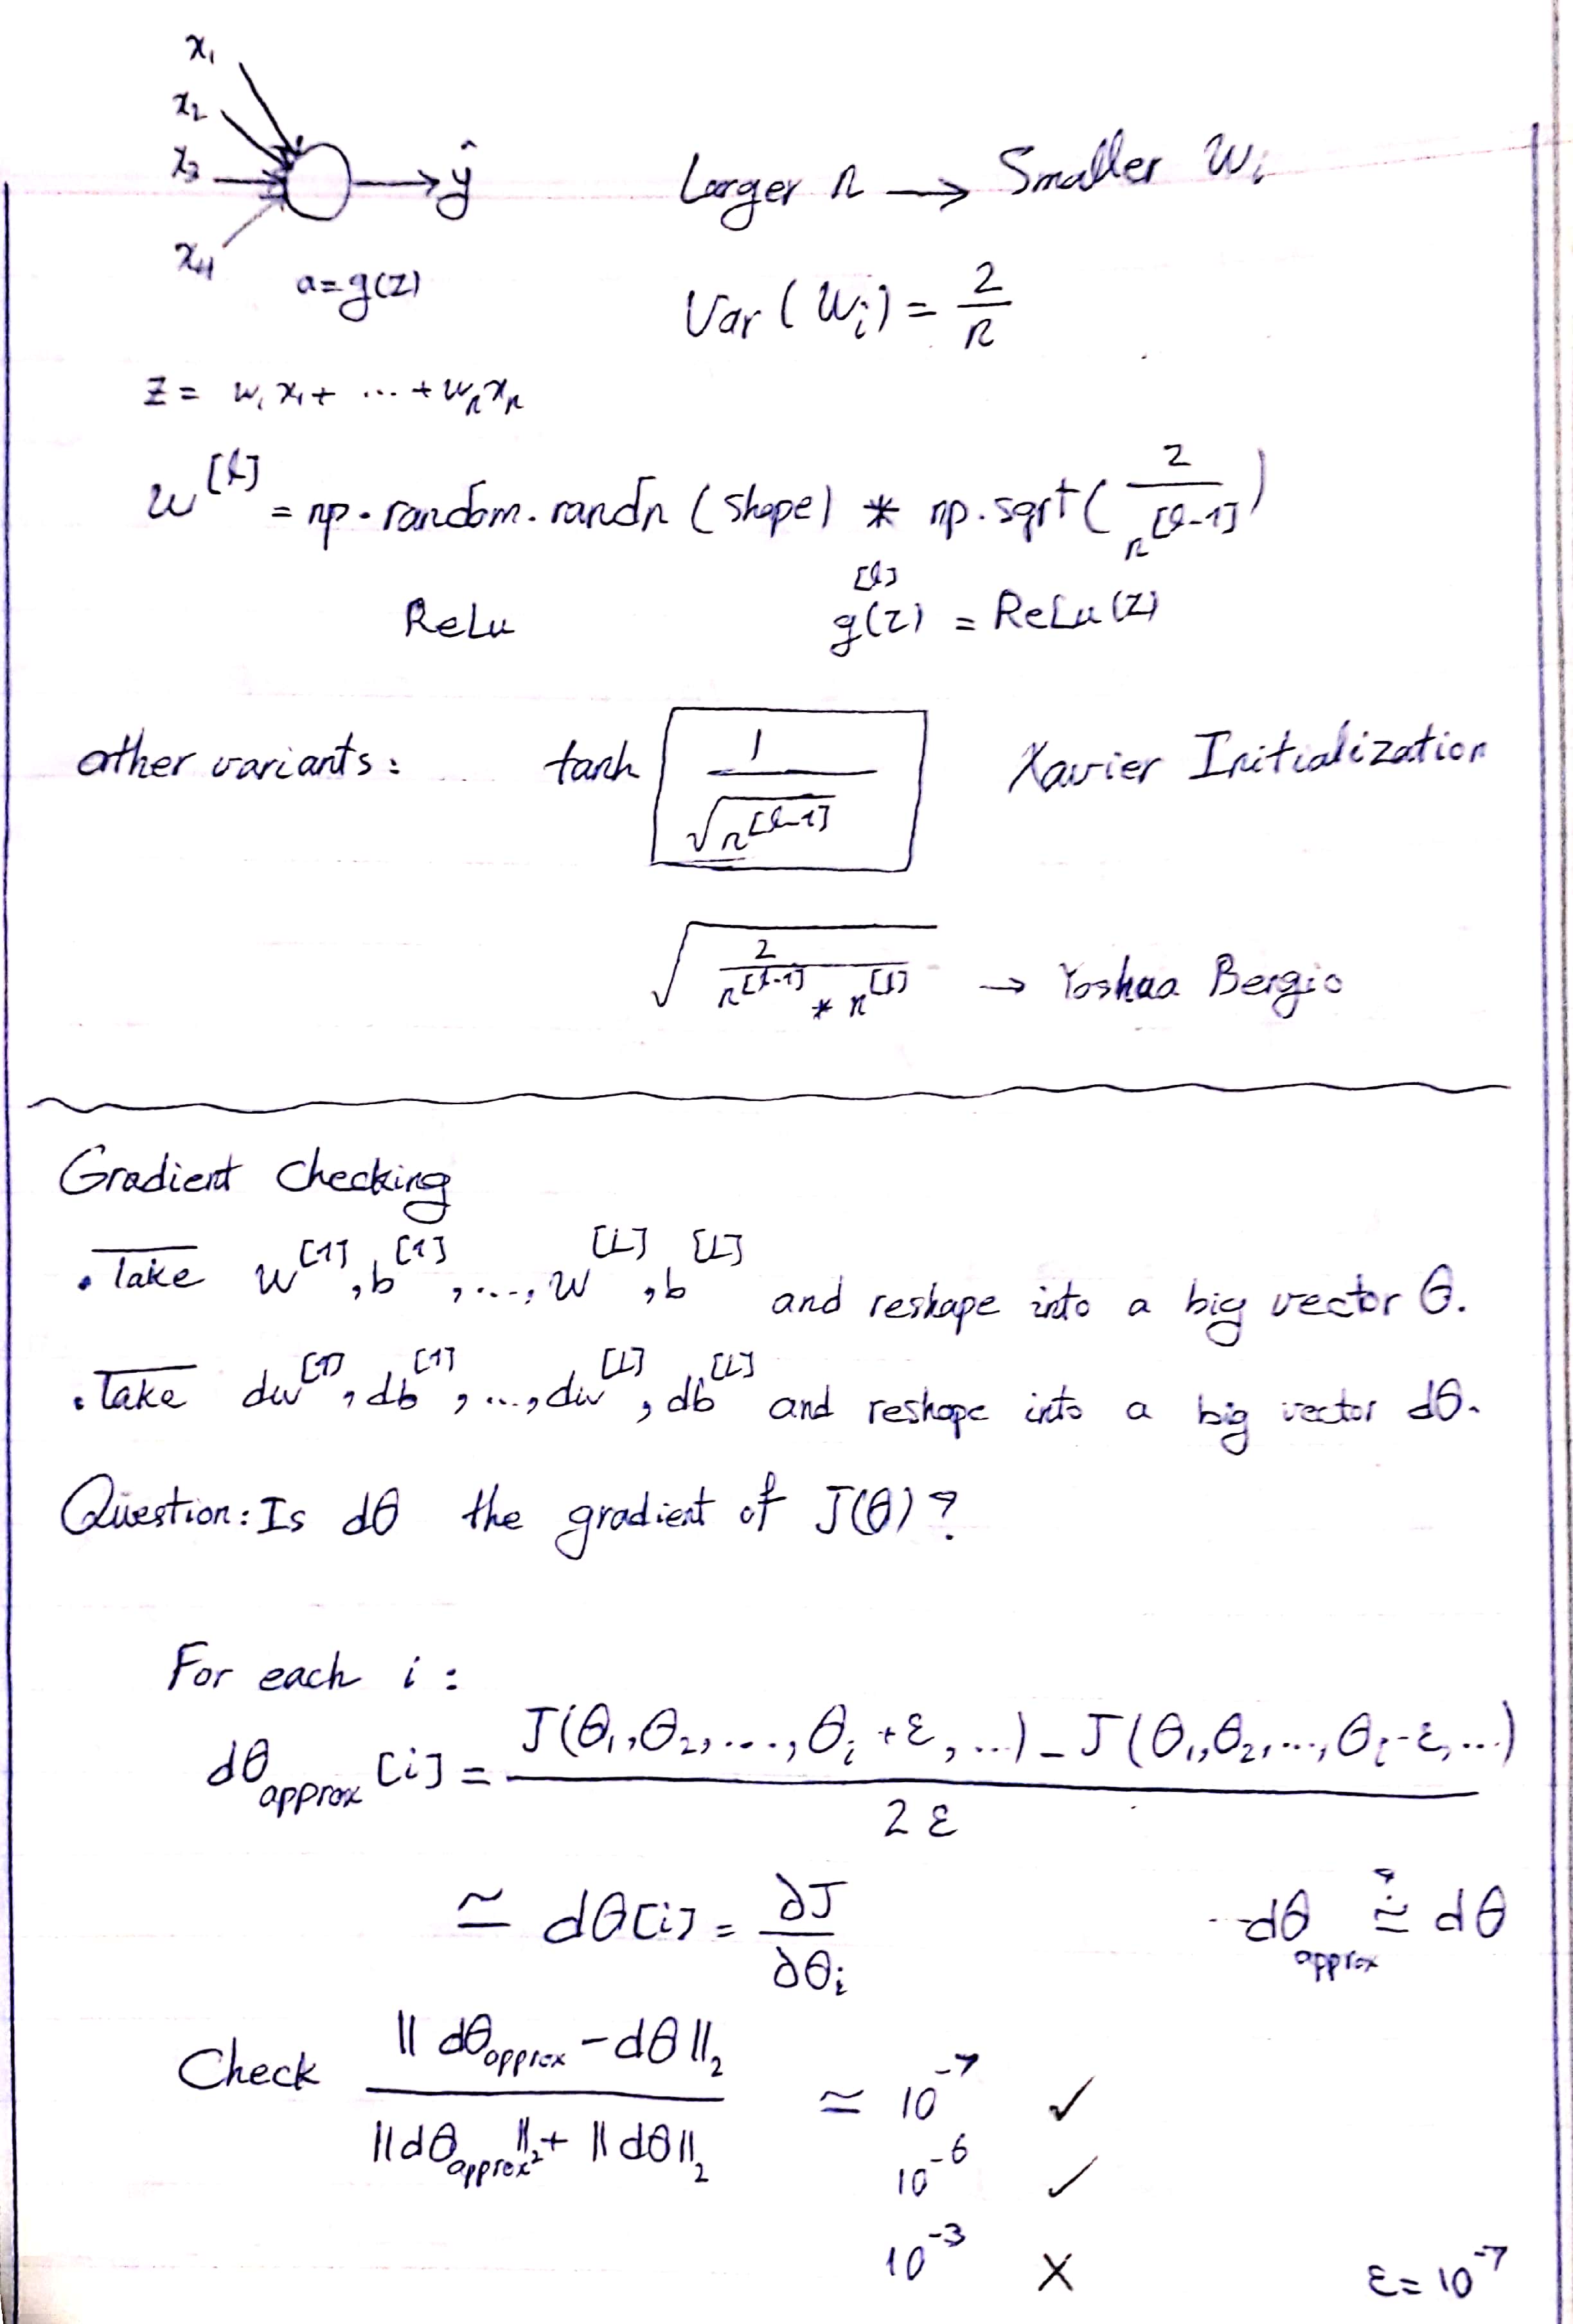 x₁
x₂
x₃
x₄
ŷ
a = g(z)
Larger n → Smaller Wᵢ
Var(Wᵢ) = 2/n
z = w₁x₁ + ... + wₙxₙ
w^[l] = np.random.randn(shape) * np.sqrt(2/n^[l-1])
ReLu g^[l](z) = ReLu(z)
other variants: tanh 1/√n^[l-1] Xavier Initialization
√(2/(n^[l-1] * n^[l])) → Yoshua Bengio
Gradient Checking
• Take w^[1], b^[1], ..., w^[L], b^[L] and reshape into a big vector θ.
• Take dw^[1], db^[1], ..., dw^[L], db^[L] and reshape into a big vector dθ.
Question: Is dθ the gradient of J(θ)?
For each i:
dθ_approx[i] = (J(θ₁,θ₂,...,θᵢ+ε,...) - J(θ₁,θ₂,...,θᵢ-ε,...)) / 2ε
≃ dθ[i] = ∂J/∂θᵢ dθ_approx ≃? dθ
Check ||dθ_approx - dθ||₂ / (||dθ_approx||₂ + ||dθ||₂) ≃ 10⁻⁷ ✓
10⁻⁶ ✓
10⁻³ X ε = 10⁻⁷